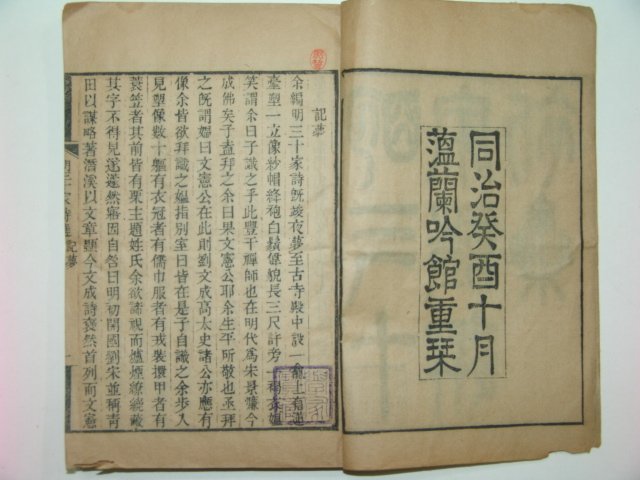 同治癸酉十月
薀蘭吟館重栞
記夢
余編明三十家詩既竣夜夢至古寺殿中設一龕上有蓮
臺塑一立像紗帽絳袍白鬚偉貌長三尺許旁一褐衣嫗
笑謂余曰子識之乎此豐干禪師也在明代為宋景濂今
成佛矣子盍拜之余曰果文憲公耶余生平所敬也亟拜
之既謂嫗曰文憲公在此則劉文成高太史諸公亦應有
像余皆欲拜識之嫗指別室曰皆在是子自識之余步入
見塑像數十軀有衣冠者有儒巾服者有戎裝擐甲者有
蓑笠者其前皆有栗主題姓氏余欲諦視而爐煙繚繞蔽
其字不得見遂蘧然寤因自咎曰明初開國劉宋並稱青
田以謀略著潛溪以文章顯今文成詩裒然首列而文憲
記夢
一